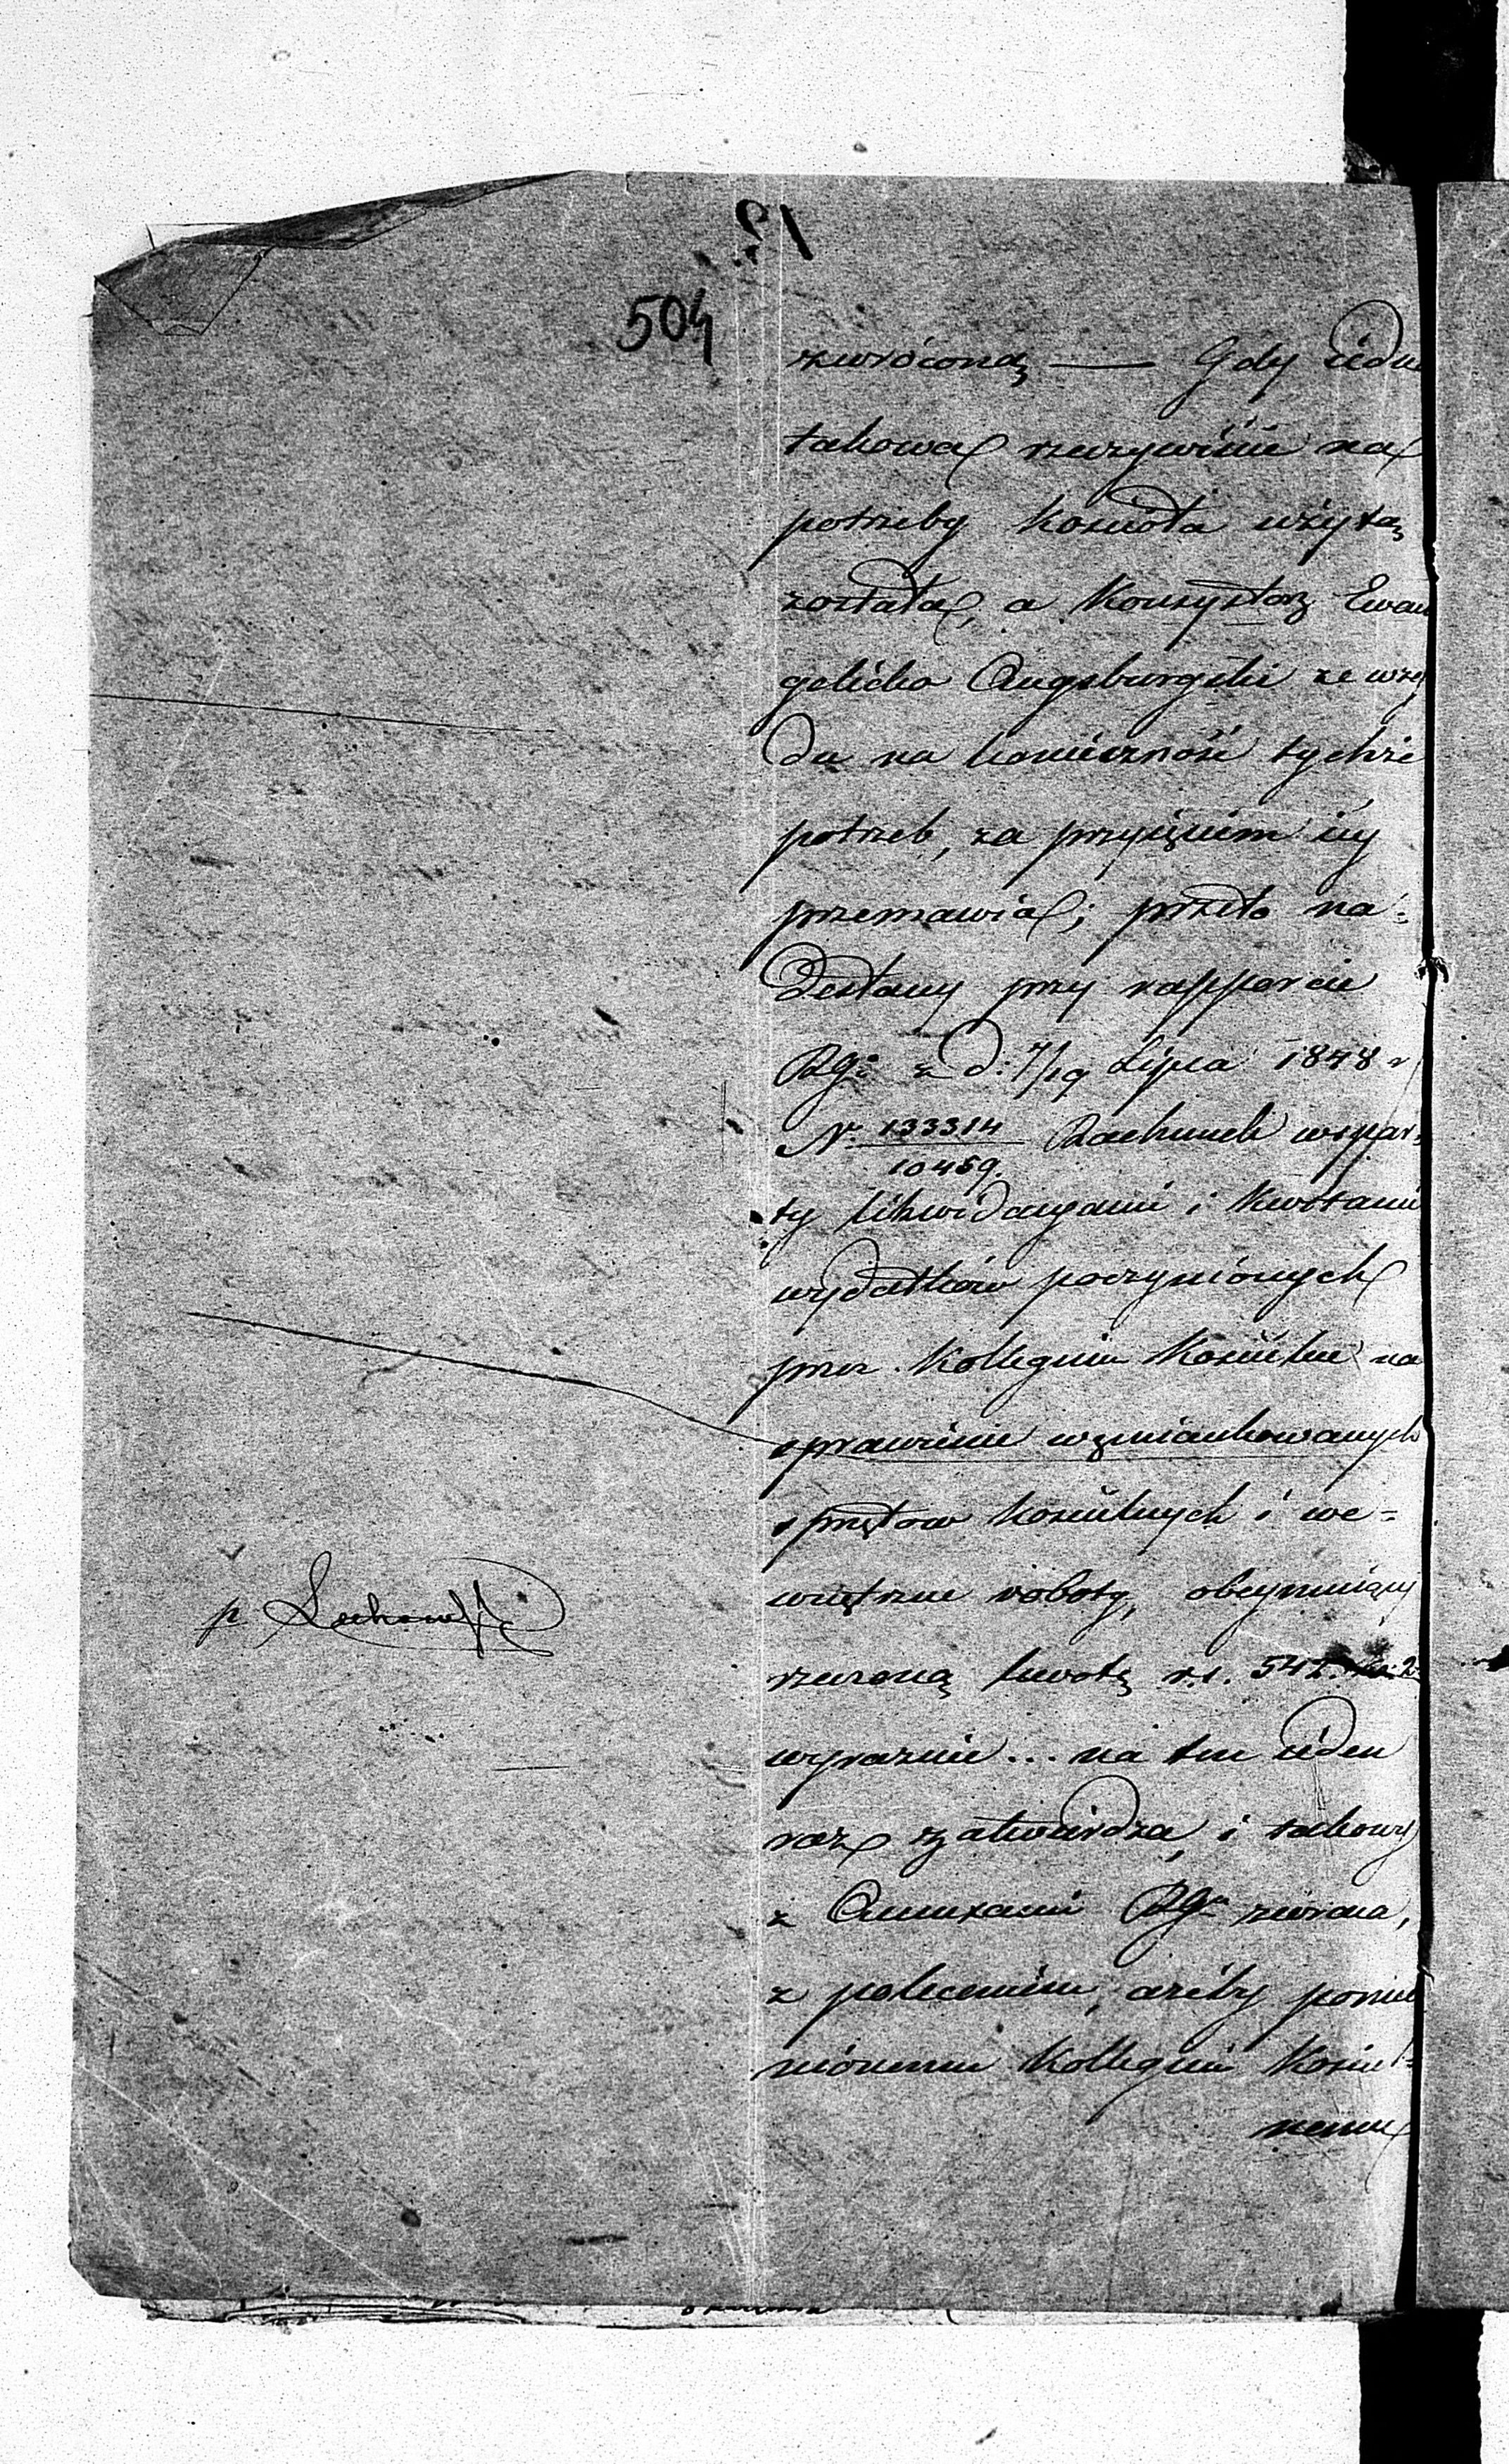 504
zwróconą — Gdy iedna
takowa rzeczywiście na
potrzeby kościoła użytą
została, a Konsystorz Ewan
gelicko Augsburgski ze wzglę
du na konieczność tychże
potrzeb, za przyięciem iey
przemawia; przeto na-
desłany przy rapporcie
Rgu z d: 7/19 Lipca 1848 r
N. 133314/10459. Rachunek wspar-
ty likwidacyami i kwitami
wydatków poczynionych
przez Kollegium Kościelne na
sprawienie wzmiankowanych
sprzętów kościelnych i we-
wnętrzne roboty, obeymuiący
rzeczoną kwotę r.s. 542
wyraźnie... na ten ieden
raz zatwierdza, i takowy
z Annexami Rgu zwraca,
z poleceniem, ażeby pomie
nionemu Kollegium Kościel-
nemu